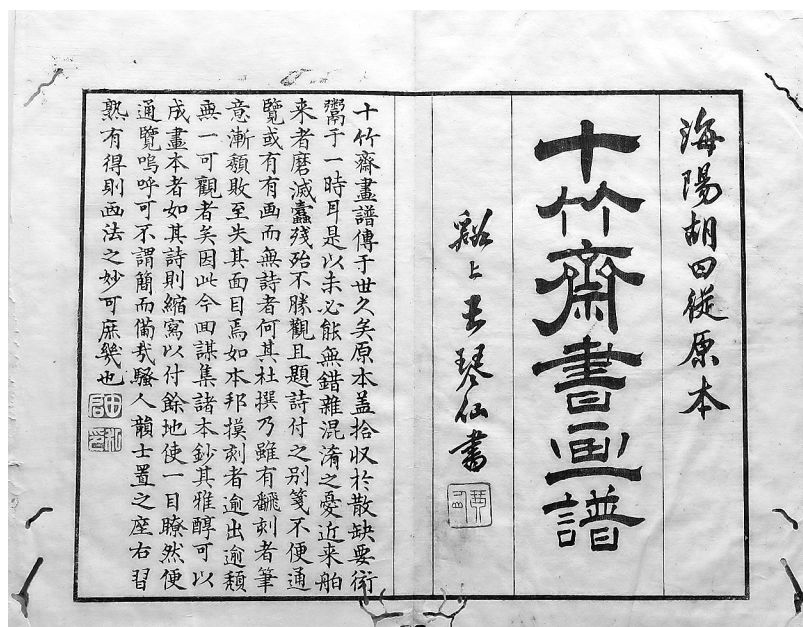 海陽胡曰從原本
十竹齋書画譜
谿上王琴仙書
十竹齋畫譜傳于世久矣原本盖拾収於散缺要衒
鬻于一時耳是以未必能無錯雜混淆之憂近来舶
来者磨滅蠹殘殆不勝觀且題詩付之别箋不便通
覽或有有画而無詩者何其杜撰乃雖有飜刻者筆
意漸頽敗至失其面目焉如本邦摸刻者逾出逾頽
無一可觀者矣因此今回謀集諸本鈔其雅醇可以
成畫本者如其詩則縮寫以付餘地使一目瞭然便
通覽嗚呼可不謂簡而備哉騷人韻士置之座右習
熟有得則画法之妙可庶幾也